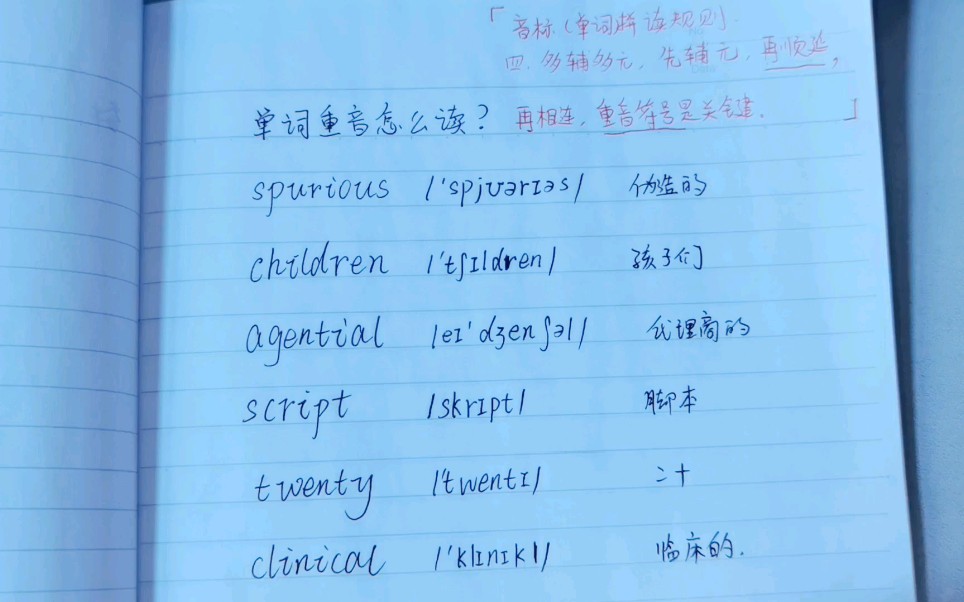 「音标(单词拼读规则)
四、多辅多元,先辅元,再顺延,
单词重音怎么读? 再相连,重音符号是关键.」
spurious /'spjʊərɪəs/ 伪造的
children /'tʃɪldren/ 孩子们
agential /eɪ'dʒenʃəl/ 代理商的
script /skrɪpt/ 脚本
twenty /'twentɪ/ 二十
clinical /'klɪnɪkl/ 临床的.